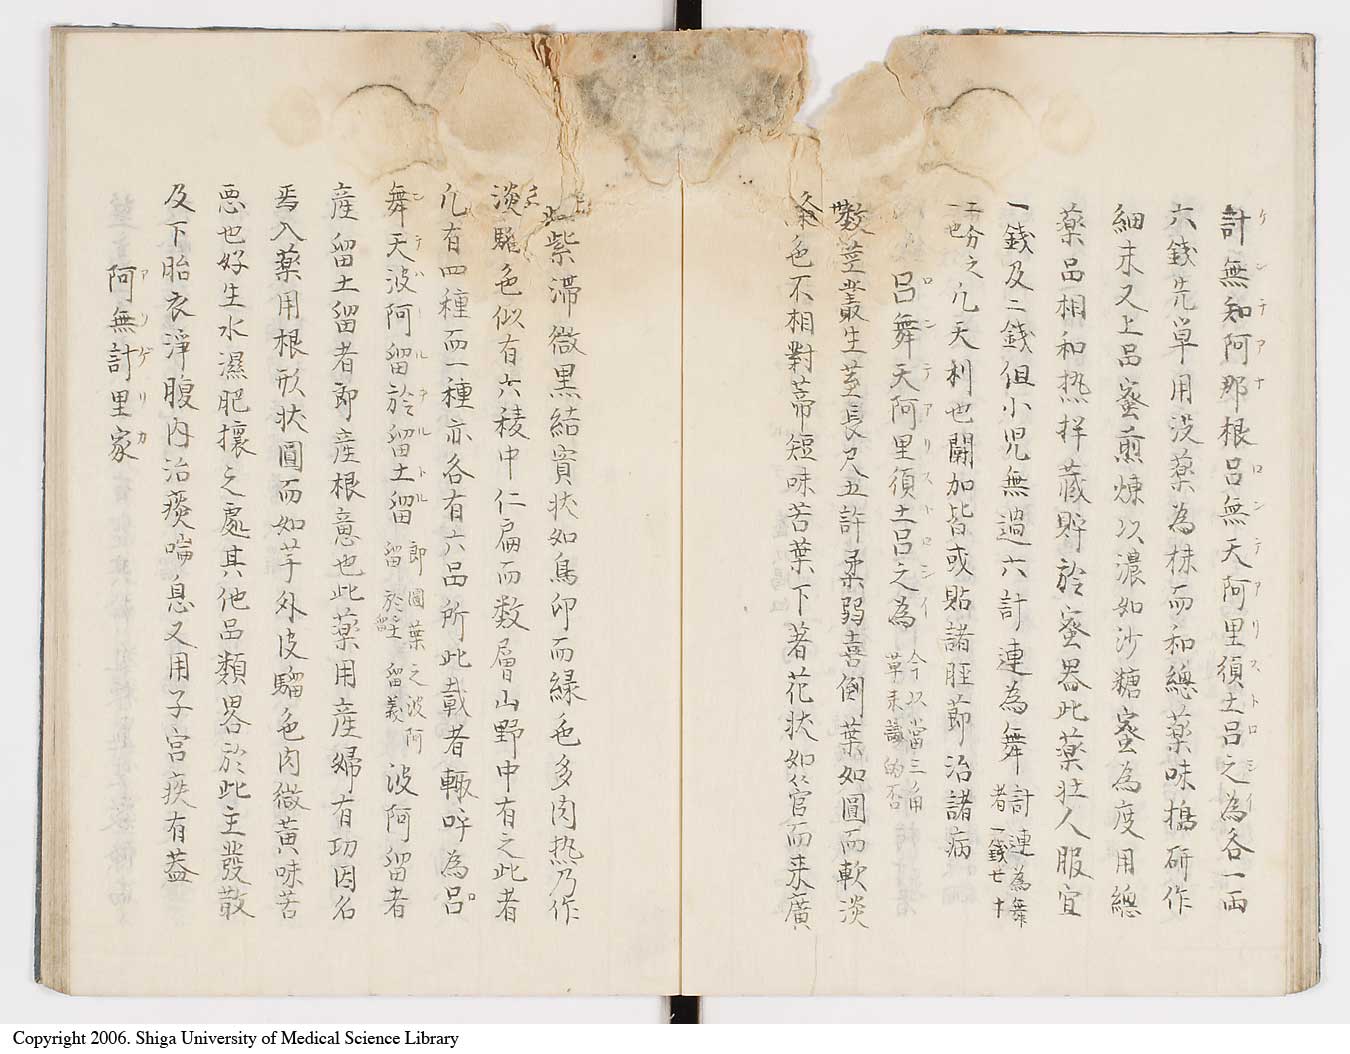 計無知阿那根呂無天阿里須土呂之為各一両
ケンテアナ ロンテアリストロシイ
六錢先草用没薬為抹而和總薬味擣研作
細末又上品蜜煎煉以濃如沙糖蜜為度用總
薬品相和熱拌蔵貯於蜜器此薬壮人服宜
一錢及二錢但小児無過六計連為舞 計連為舞者一錢廿
分之 凡天利也闢加皆或貼諸脛節治諸病
呂舞天阿里須土呂之為 今以當三角草未識的否
ロンテアリストロシイ
數莖叢生莖長尺五許柔弱喜倒葉如圓而軟淡
色不相對蒂短味苦葉下著花状如官而来廣
紫滞微黒結實状如鳥卵而緑色多肉熱乃作
淡騮色似有六稜中仁扁而数層山野中有之此者
凡有四種而一種亦各有六品所此載者輙呼為呂
舞天波阿留於留土留 即圓葉之波阿留於留土留義 波阿留者
ンテハールヲルトル
産留土留者即産根意也此薬用産婦有功因名
焉入薬用根形状圓而如芋外皮騮色肉微黄味苦
悪也好生水濕肥攘之處其他品類畧於此主發散
及下胎衣淨腹内治痰喘息又用子宮疾有益
阿無計里家
アンゲリカ
Copyright 2006. Shiga University of Medical Science Library